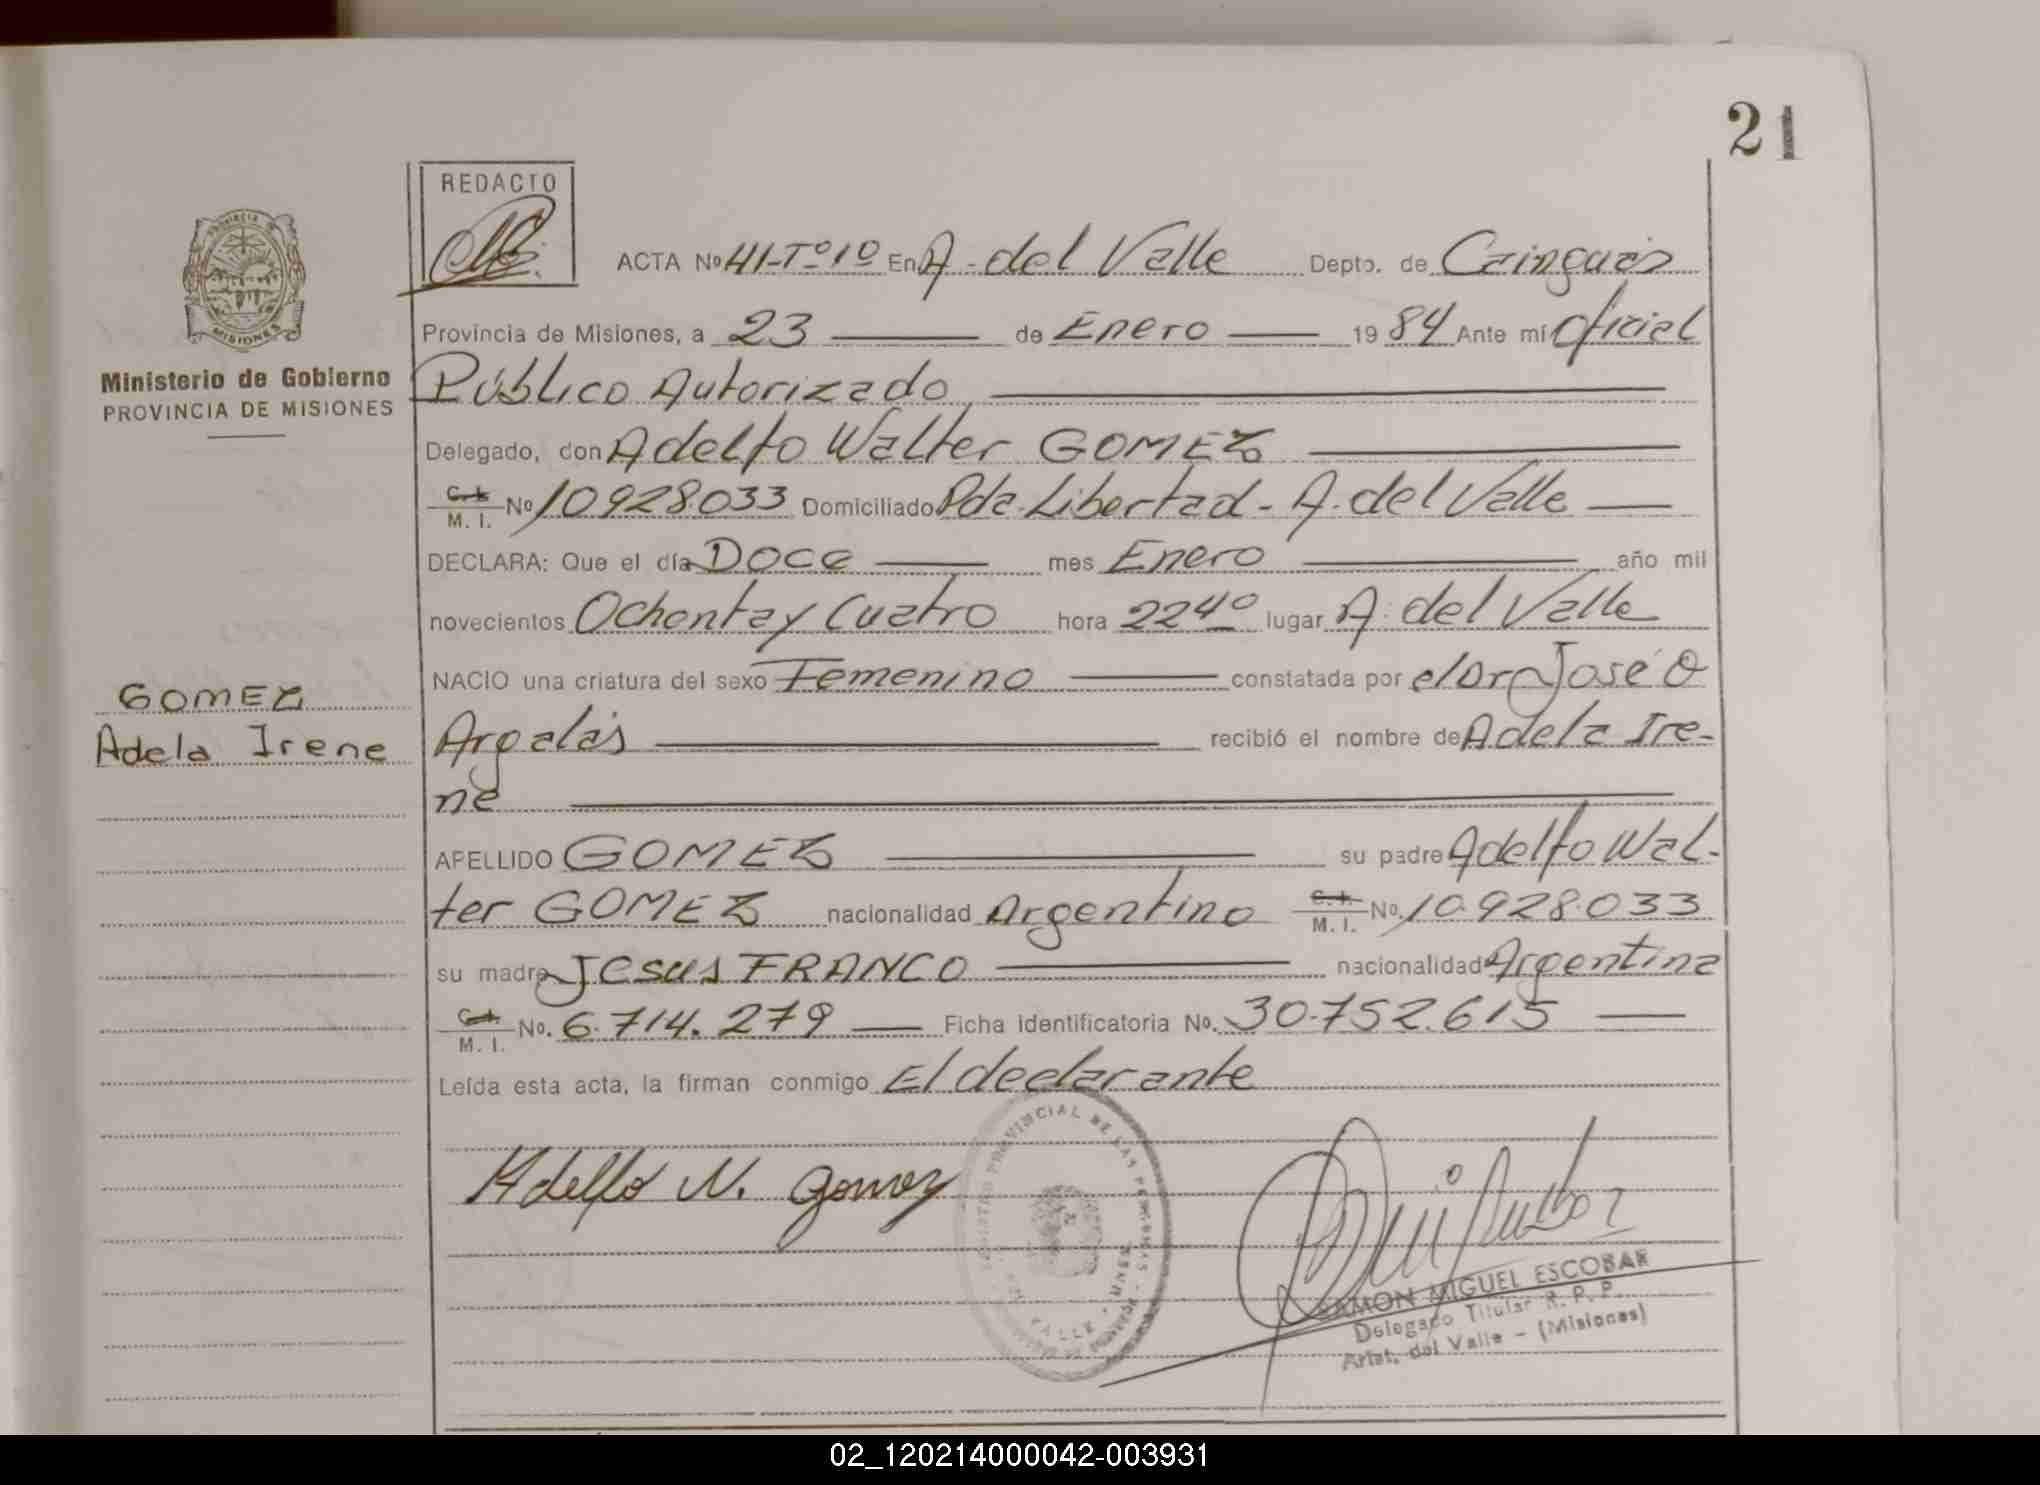 21
REDACTO
PROVINCIA DE MISIONES
Ministerio de Gobierno
PROVINCIA DE MISIONES
ACTA Nº 41-Tº1º En A. del Valle Depto. de Cainguás
Provincia de Misiones, a 23 de Enero 1984 Ante mí Oficial
Público Autorizado
Delegado, don Adelfo Walter GOMEZ
C. I. M. I. Nº 10928.033 Domiciliado Pda. Libertad - A. del Valle
DECLARA: Que el día DOCE mes Enero año mil
novecientos Ochenta y Cuatro hora 22 4º lugar A. del Valle
NACIO una criatura del sexo Femenino constatada por el Dr José O
Argalás recibió el nombre de Adela Ire-
ne
GOMEZ
Adela Irene
APELLIDO GOMEZ su padre Adelfo Wal-
ter GOMEZ nacionalidad Argentino C. I. M. I. No. 10.928.033
su madre Jesus FRANCO nacionalidad Argentina
C. I. M. I. No. 6.714.279 Ficha identificatoria No. 30.752.615
Leída esta acta, la firman conmigo El declarante
Adelfo W. Gomez
REGISTRO PROVINCIAL DE LAS PERSONAS
VALLE
RAMON MIGUEL ESCOBAR
Delegado Titular R. P. P.
Arist. del Valle - (Misiones)
02_120214000042-003931